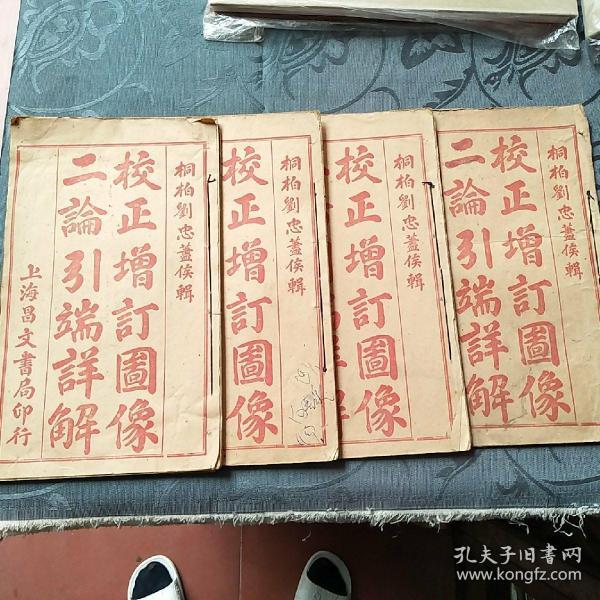 桐柏劉忠藎侯輯
校正增訂圖像
二論引端詳解
上海昌文書局印行
桐柏劉忠藎侯輯
校正增訂圖像
桐柏劉忠藎侯輯
校正增訂圖像
桐柏劉忠藎侯輯
校正增訂圖像
二論引端詳解
孔夫子旧書网
www.kongfz.com